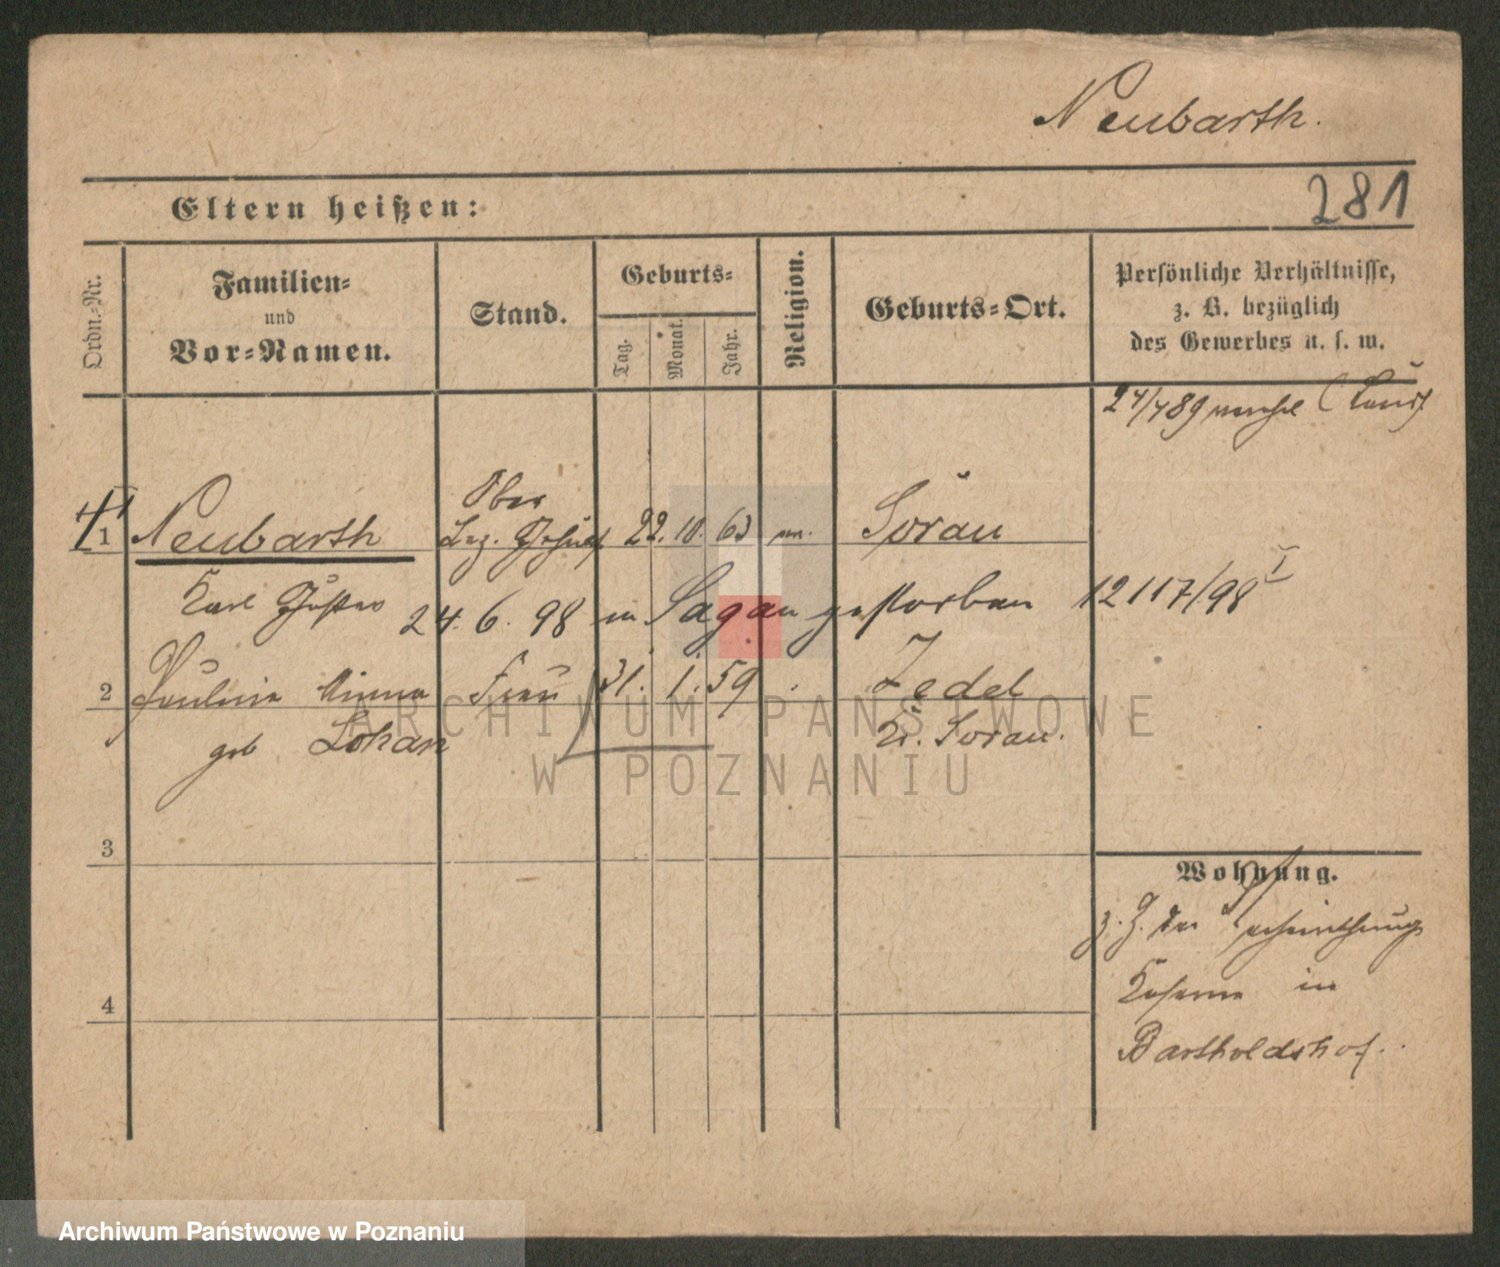 Neubarth.
281
Eltern heißen:
Ordn.-Nr.
Familien-
und
Vor-Namen.
Stand.
Geburts-
Tag.
Monat.
Jahr.
Religion.
Geburts-Ort.
Persönliche Verhältnisse,
z. B. bezüglich
des Gewerbes u. s. w.
1 Neubarth Ober 22. 10. 63 Sorau
Karl Gustav
24. 6. 98 in Sagan gestorben 12117/98 I
2 Pauline Minna Frau 31. 1. 59 Zedel
geb Lohan Kr. Sorau.
3
4
Wohnung.
Kaserne in
Bartholdshof.
ARCHIWUM PAŃSTWOWE
W POZNANIU
Archiwum Państwowe w Poznaniu